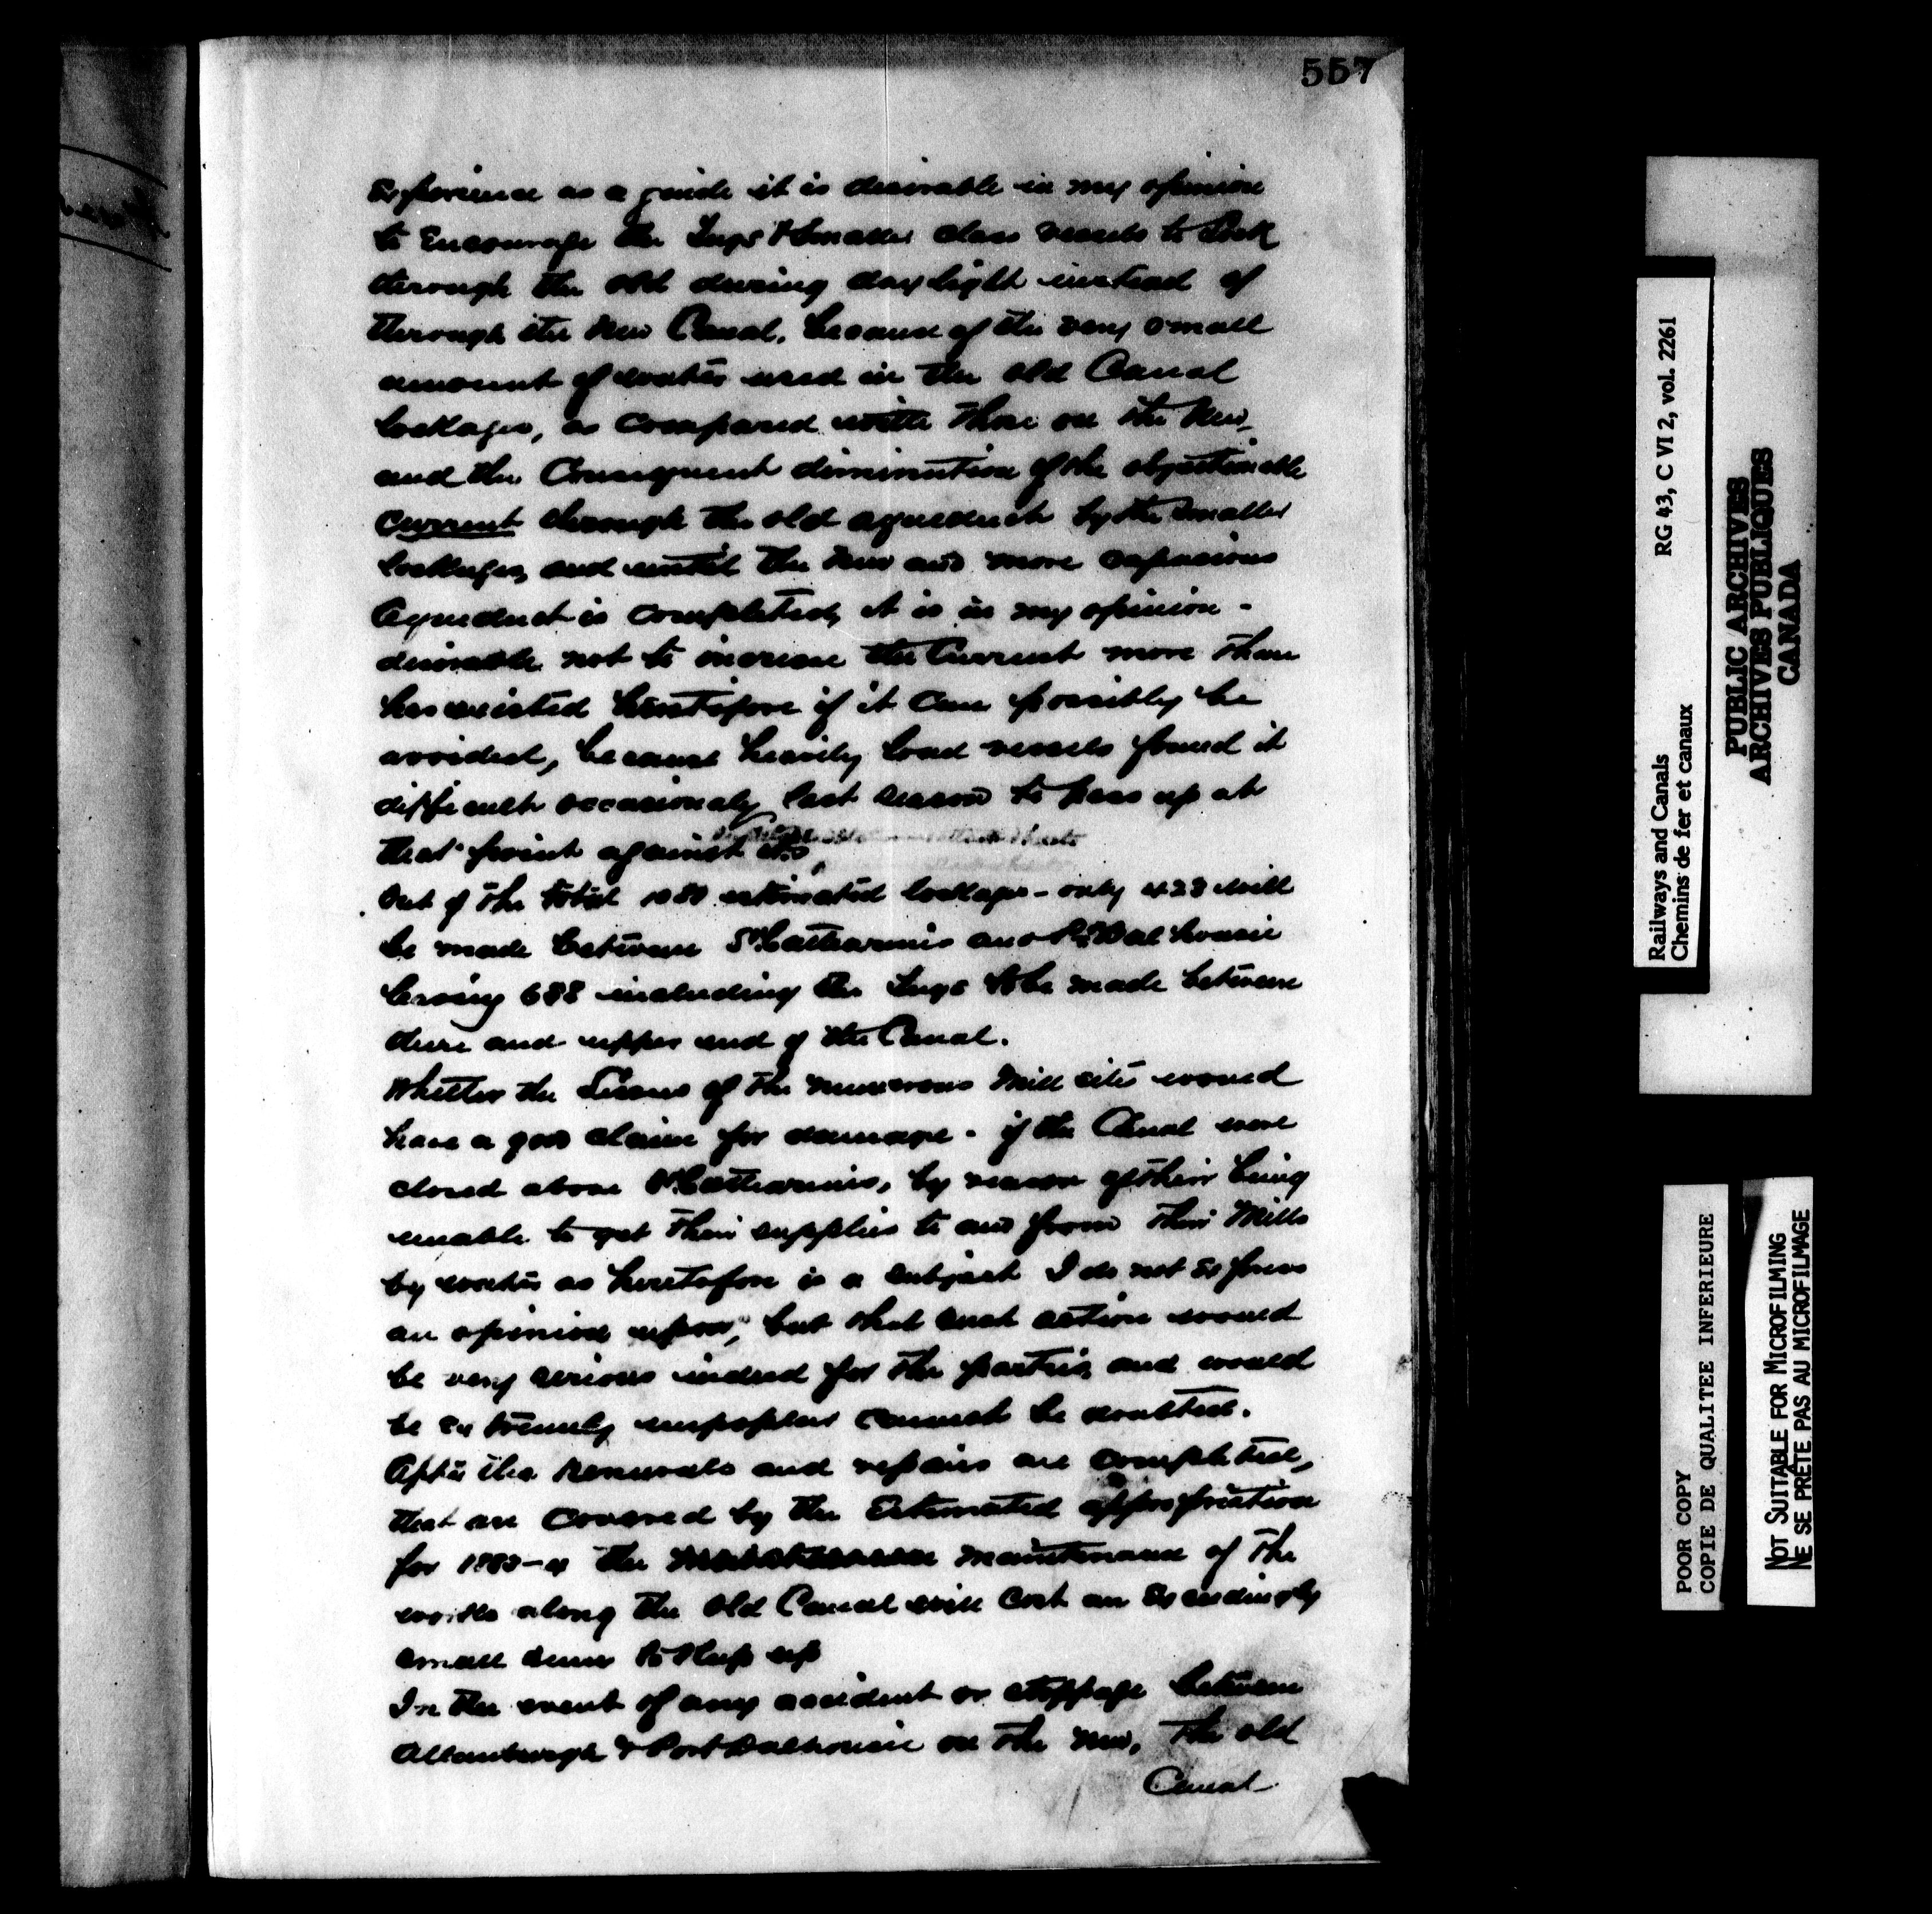 557
Experience as a guide it is desirable in my opinion
to Encourage the Tugs & Smaller class vessels to Lock
through the old during daylight instead of
through the New Canal, because of the very small
amount of water used in the old Canal
lockages, as compared with those on the New,
and the Consequent diminution of the objectionable
Current through the old aqueduct by the smaller
lockages, and until the new and more capacious
Aqueduct is completed, it is in my opinion -
desirable not to increase the Current more than
has existed heretofore if it can possibly be
avoided, because heavily load vessels found it
difficult occasionaly last season to pass up at
that point against it.
Out of the total estimated lockages - only 423 will
be made between St Catharines and Pt Dalhousie
leaving 688 including the Tugs to be made between
there and upper end of the Canal.
Whether the Lessees of the numerous Mill sites would
have a good claim for damage - if the Canal were
closed above St Catharines, by reason of their being
unable to get their supplies to and from their Mills
by water as heretofore is a subject I do not express
an opinion upon, but that such action would
be very serious indeed for the parties, and would
be extremely unpopular cannot be doubted.
After the renewals and repairs are completed,
that are covered by the Estimated appropriation
for 1883-4 the maintenance of the
works along the old Canal will cost an Exceedingly
small sum to Keep up
In the event of any accident or stoppage between
Allanburgh & Port Dalhousie on the new, the old
Canal
Railways and Canals RG 43, C VI 2, vol. 2261
Chemins de fer et canaux
PUBLIC ARCHIVES
ARCHIVES PUBLIQUES
CANADA
POOR COPY
COPIE DE QUALITEE INFERIEURE
NOT SUITABLE FOR MICROFILMING
NE SE PRÊTE PAS AU MICROFILMAGE